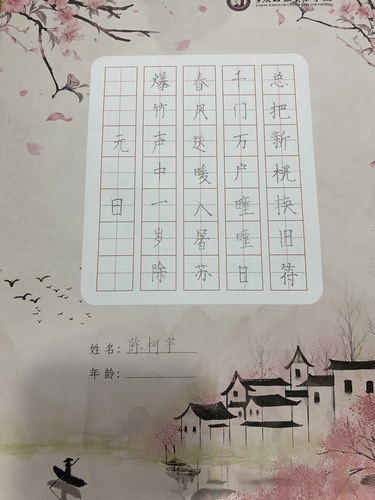 元日
爆竹声中一岁除
春风送暖入屠苏
千门万户曈曈日
总把新桃换旧符
姓名：陈柯宇
年龄：